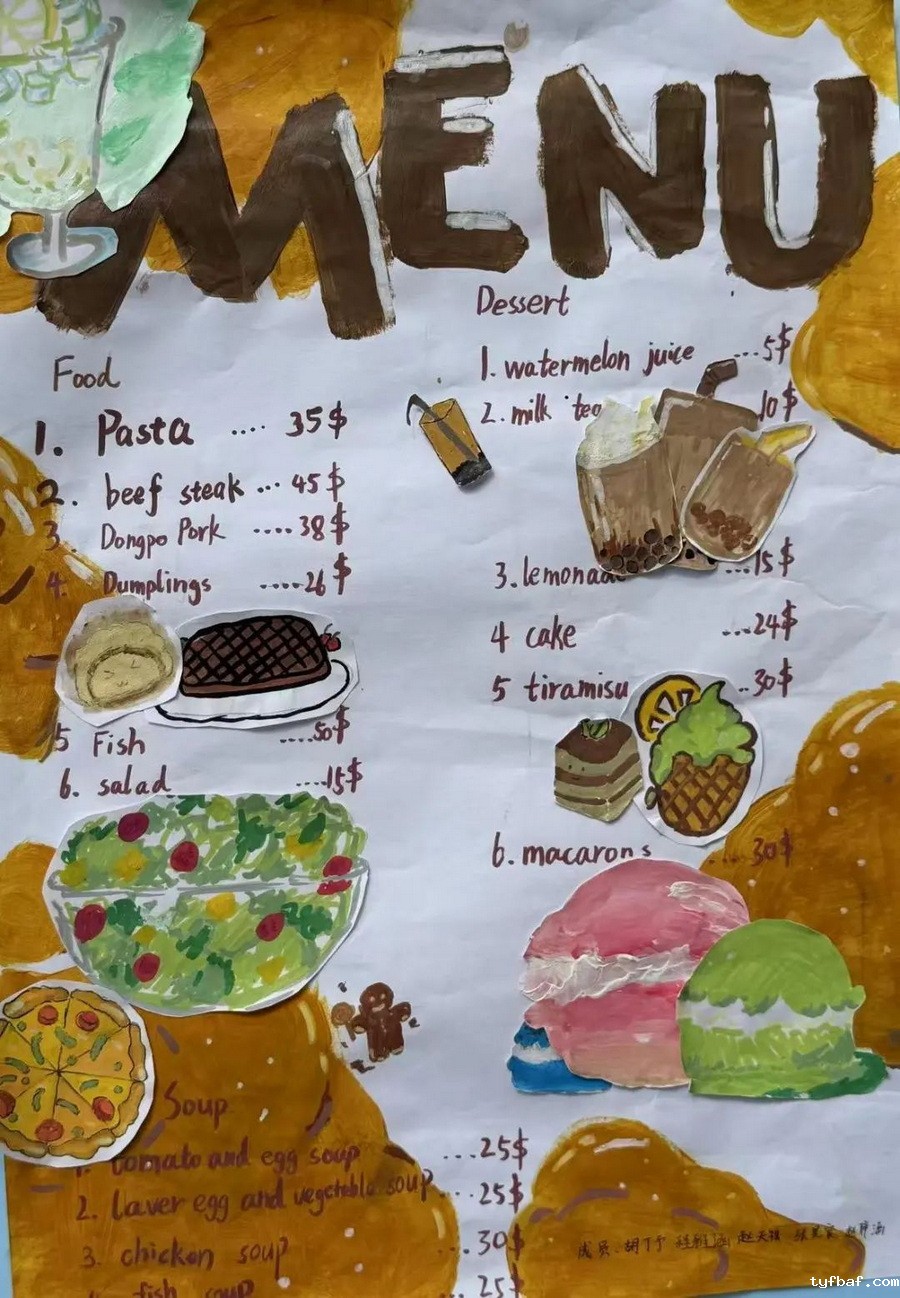 MENU
Food
1. Pasta .... 35$
2. beef steak ... 45$
3. Dongpo Pork .... 38$
4. Dumplings .... 26$
5 Fish .... 50$
6. salad .... 15$
Soup
1. tomato and egg soup ... 25$
2. laver egg and vegetable soup ... 25$
3. chicken soup ... 30$
4. fish soup 25$
Dessert
1. watermelon juice ... 5$
2. milk tea 10$
3. lemonade ... 15$
4 cake ... 24$
5 tiramisu .. 30$
6. macarons .... 30$
成员:胡丁予 赵天祺
tyfbaf.com